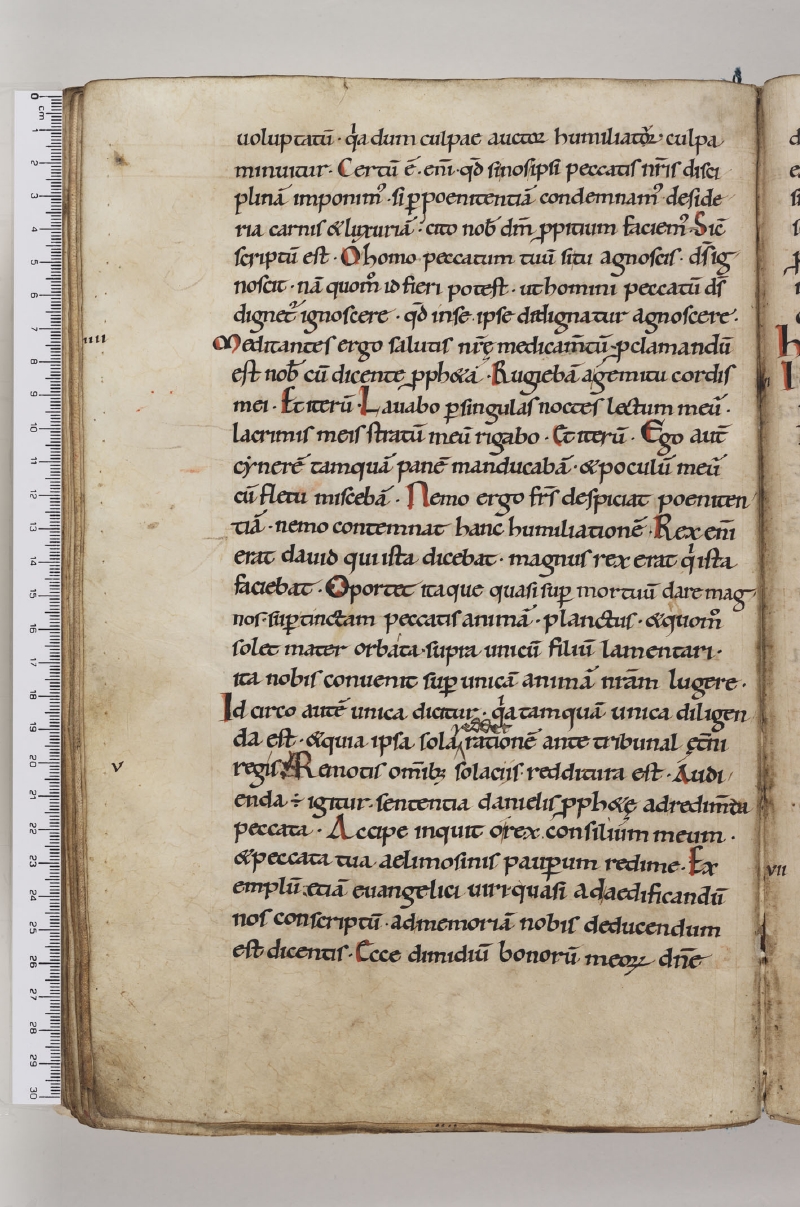 uoluptatū · qa dum culpae auctor humiliat᷑ culpa
minuitur · Certū ē · eni̅ · qd̄ si nosipsi peccatis nr̄is disci
plinā imponim᷒ · si p̱ poenitentiā condemnam᷒ deside
ria carnis & luxuriā · cito nob̄ dm̄ ꝓpitium faciem᷒ · Sic̄
scriptū est · O homo peccatum tuū si tu agnoscis · dš ig
noscit · nā quom̊ id fieri potest · ut homini peccatū dš
dignet᷑ ignoscere · qd̄ inse ipse dedignatur agnoscere ·
iiii Meditantes ergo salutis nr̄ę medicam̄tū · ꝓclamandū
est nob̄ cū dicente ꝓph&ā · Rugiebā a gemitu cordis
mei · Et iterū · Lauabo p̱ singulas noctes lectum meū ·
lacrimis meis stratū meū rigabo · Et iterū · Ego aut̄
cynerē tamquā panē manducabā · & poculū meū
cū fletu miscebā · Nemo ergo fr̄s despiciat poeniten
tiā · nemo contemnat hanc humiliationē · Rex eni̅
erat dauid qui ista dicebat · magnus rex erat q̇ ista
faciebat · Oportet itaque quasi sup̱ mortuū dare mag
nos · sup̱ tinctam peccatis animā · planctus · & quom̊
solet mater orbata · supra unicū filiū lamentari ·
ita nobis conuenit sup̱ unicā animā nr̄am lugere ·
Id circo autē unica dicitur · qa tamquā unica diligen
da est · & quia ipsa sola rationē ante tribunal ęt̄ni
v regis · Remotis om̄ib; solaciis redditura est · Audi
enda ÷ igitur · sententia danielis ꝓph&ę ad redim̄da
peccata · Accipe inquit o rex consilium meum ·
& peccata tua aelimosinis paup̱um redime · Ex
emplū etiā euangelici uiri quasi ad aedificandū
nos conscriptū · ad memoriā nobis deducendum
est dicentis · Ecce dimidiū bonorū meoꝝ dn̄e
vii
0 cm 1 2 3 4 5 6 7 8 9 10 11 12 13 14 15 16 17 18 19 20 21 22 23 24 25 26 27 28 29 30